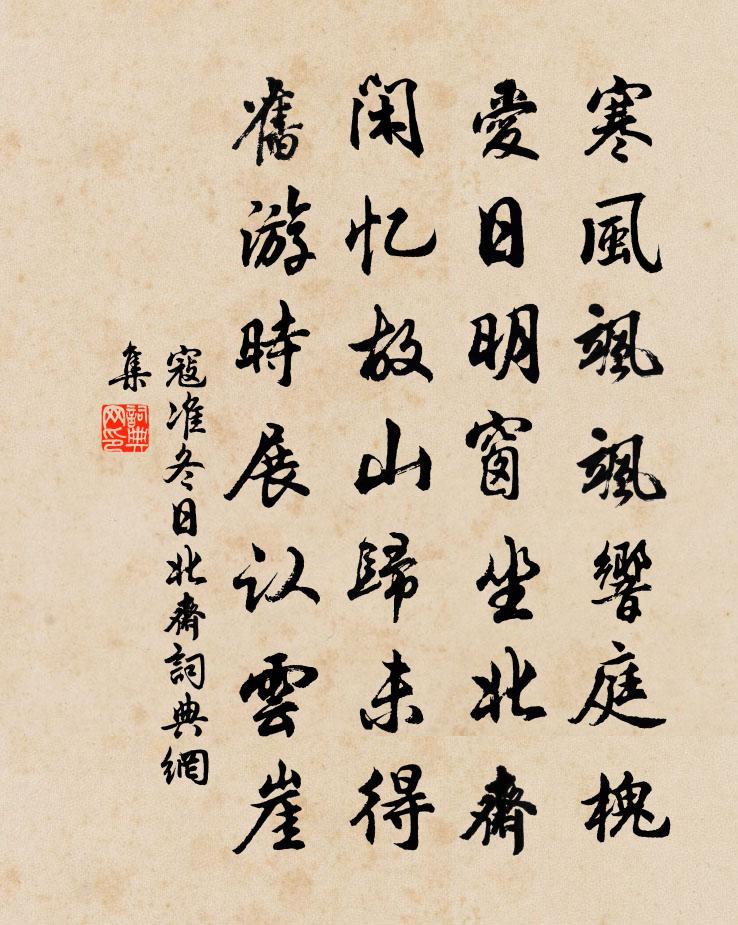 寒風颯颯響庭槐
愛日明窗坐北齋
閑忆故山歸未得
舊游時展认雲崖
寇准冬日北齋詞典網
集
詞典网印